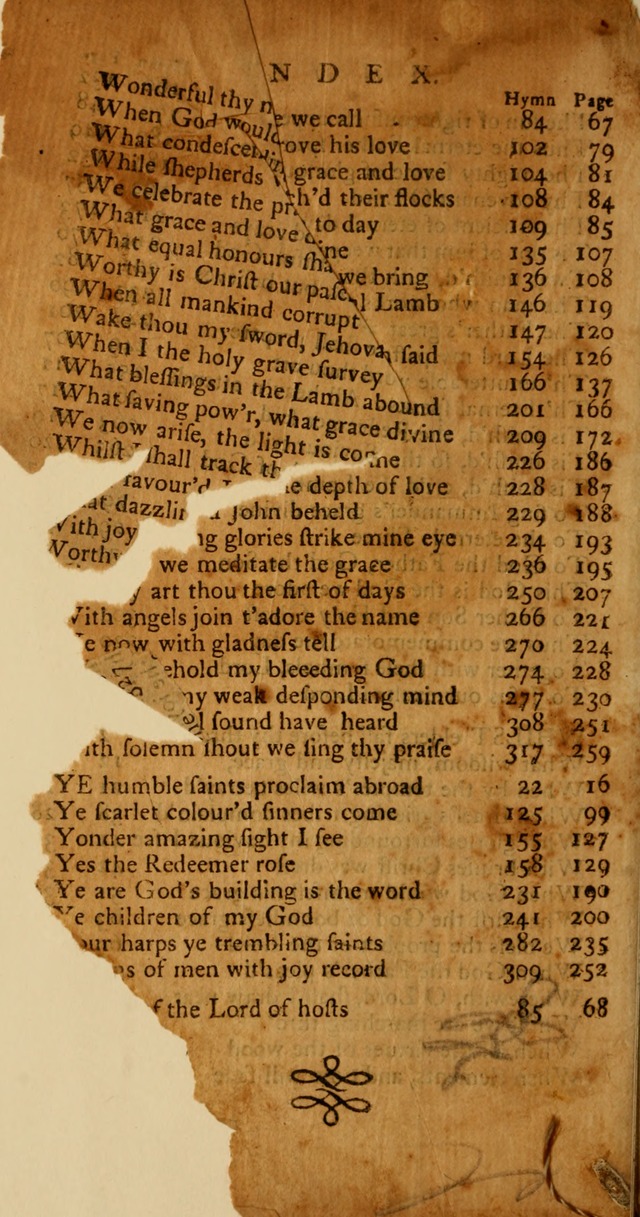 N D E X.
Hymn Page
Wonderful thy n e we call 84 67
When God would ove his love 102 79
What condeſcen grace and love 104 81
While ſhepherds h'd their flocks 108 84
We celebrate the to day 109 85
What grace and love ine 135 107
What equal honours ſha we bring 136 108
Worthy is Chriſt our paſc l Lamb 146 119
When all mankind corrupt 147 120
Wake thou my ſword, Jehova ſaid 154 126
When I the holy grave ſurvey 166 137
What bleſſings in the Lamb abound 201 166
What ſaving pow'r, what grace divine 209 172
We now ariſe, the light is come 226 186
Whilſt ſhall track th e depth of love 228 187
favour'd John beheld 229 188
at dazzlin ng glories ſtrike mine eye 234 193
With joy we meditate the grace 236 195
Worthy art thou the firſt of days 250 207
With angels join t'adore the name 266 221
e now with gladneſs tell 270 224
ehold my bleeeding God 274 228
my weak deſponding mind 277 230
ſound have heard 308 251
ith ſolemn ſhout we ſing thy praiſe 317 259
YE humble ſaints proclaim abroad 22 16
Ye ſcarlet colour'd ſinners come 125 99
Yonder amazing ſight I ſee 155 127
Yes the Redeemer roſe 158 129
Ye are God's building is the word 231 190
Ye children of my God 241 200
our harps ye trembling ſaints 282 235
s of men with joy record 309 252
f the Lord of hoſts 85 68